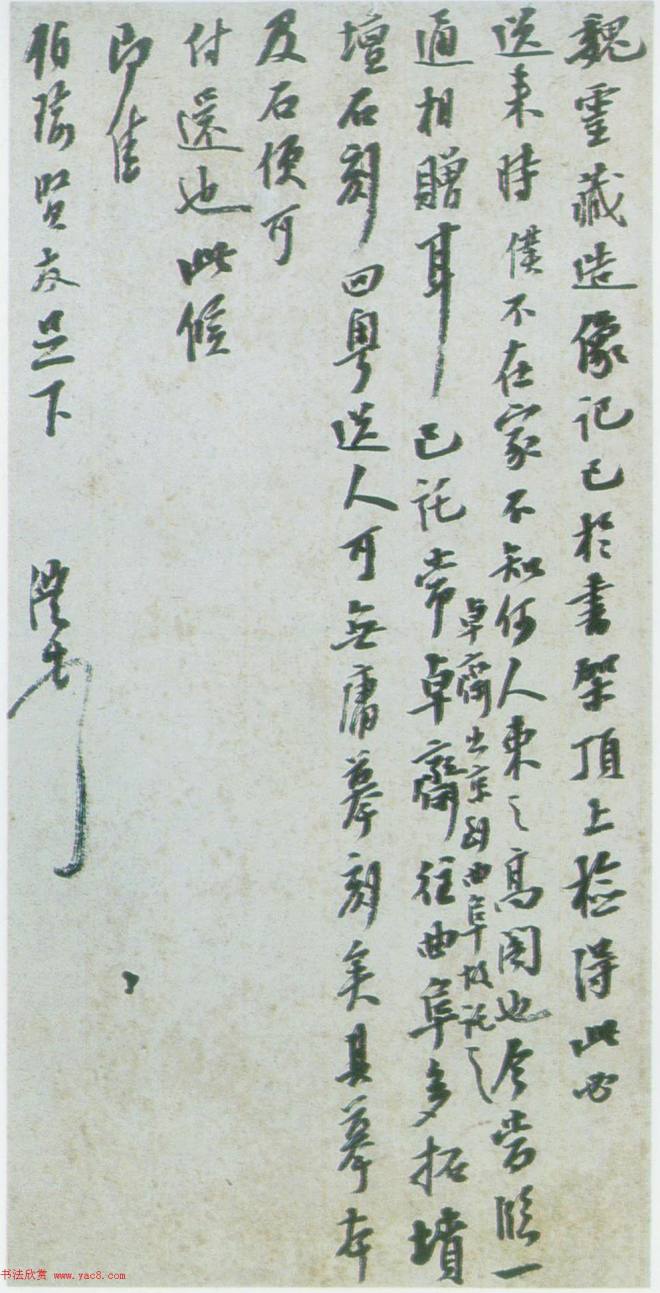 魏靈藏造像记已於書架頂上檢得此必
送来時僕不在家不知何人束之高阁也今尝臨一
通相贈耳已託常卓齋往曲阜多拓墳
卓齋出京到曲阜故託之
壇石刻回粤送人可無庸摹刻矣其摹本
及石便可
付還也此候
即佳
伯瑜賢友足下
澧书
书法欣赏 www.yac8.com